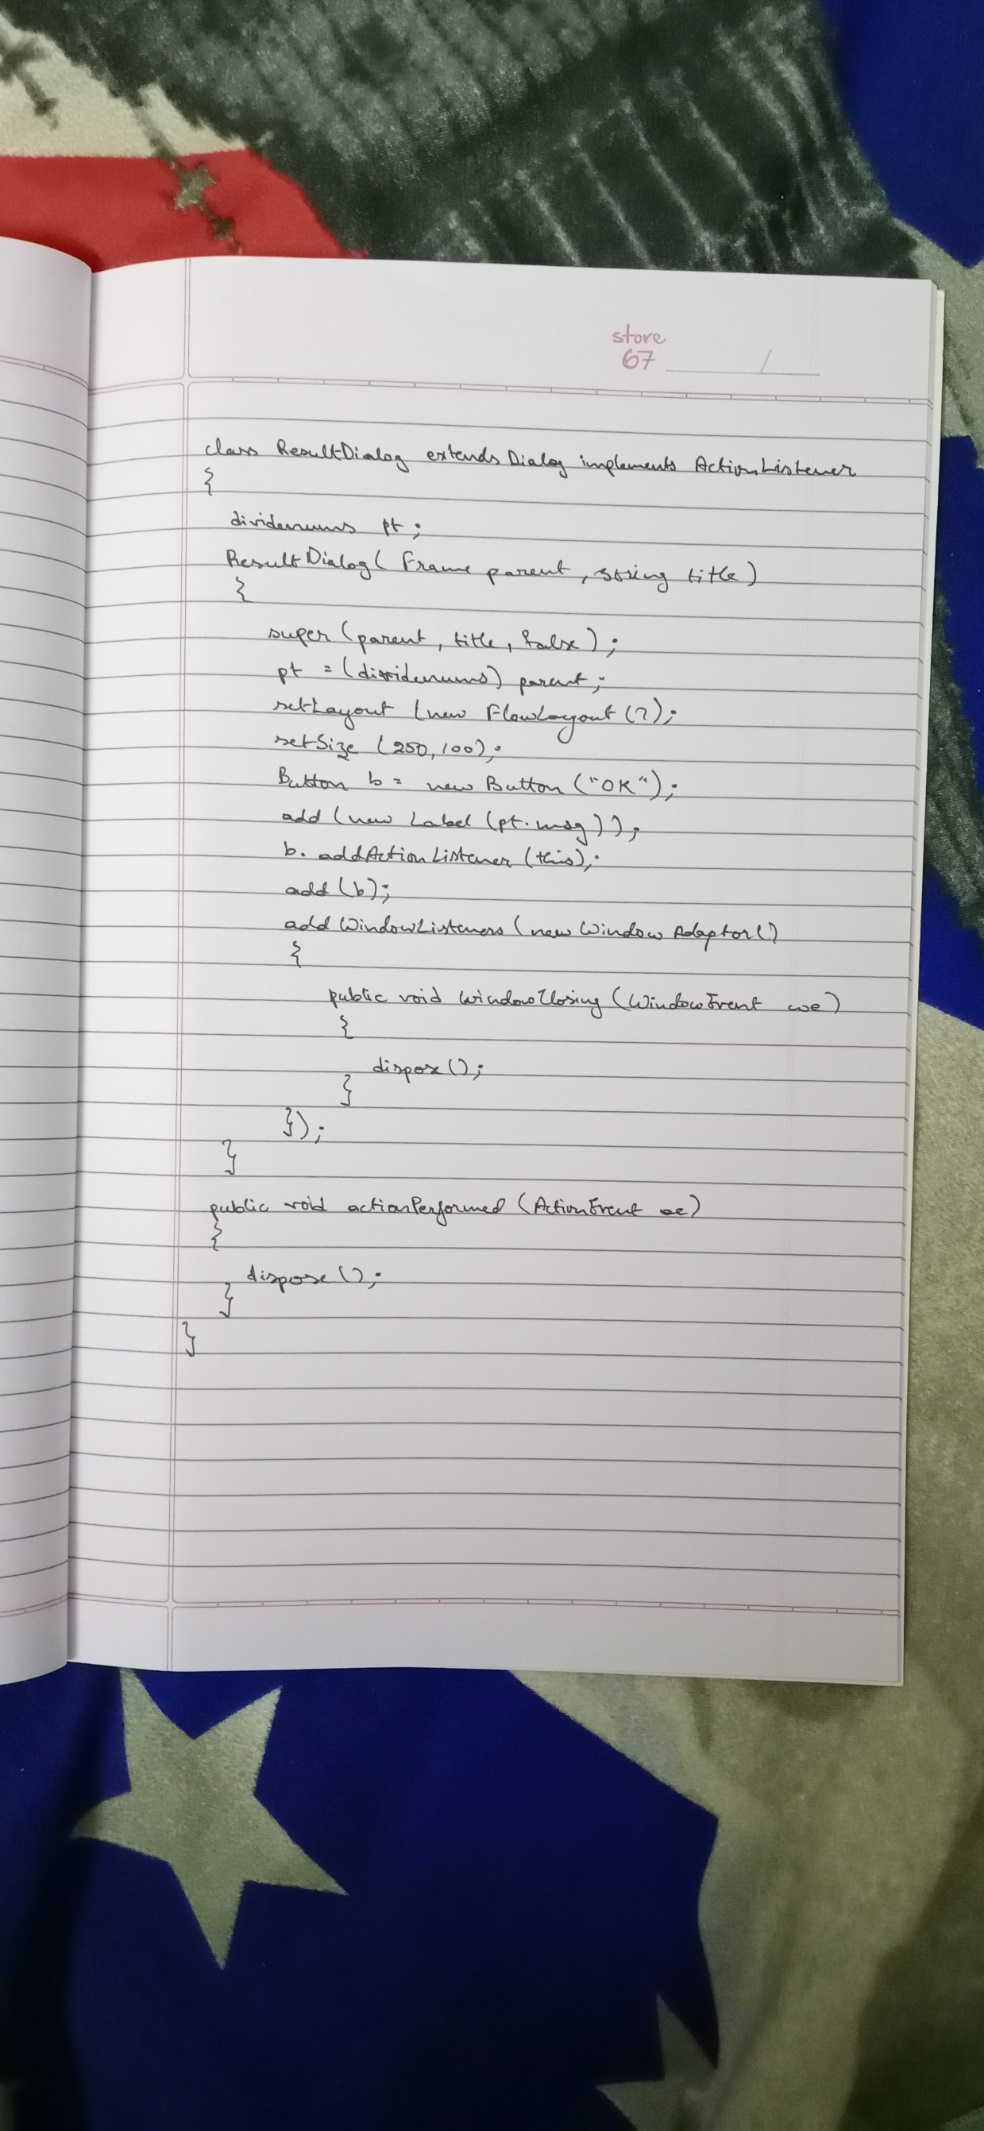 store
67
class ResultDialog extends Dialog implements ActionListener
{
dividenums pt;
ResultDialog( Frame parent, string title)
{
super (parent, title, false);
pt = (dividenums) parent;
setLayout (new FlowLayout();
setSize (250,100);
Button b = new Button ("OK");
add (new Label (pt.msg));
b. addActionListener (this);
add (b);
addWindowListeners (new WindowAdaptor()
{
public void windowClosing (WindowEvent we)
{
dispose ();
}
});
}
public void actionPerformed (ActionEvent ae)
{
dispose ();
}
}